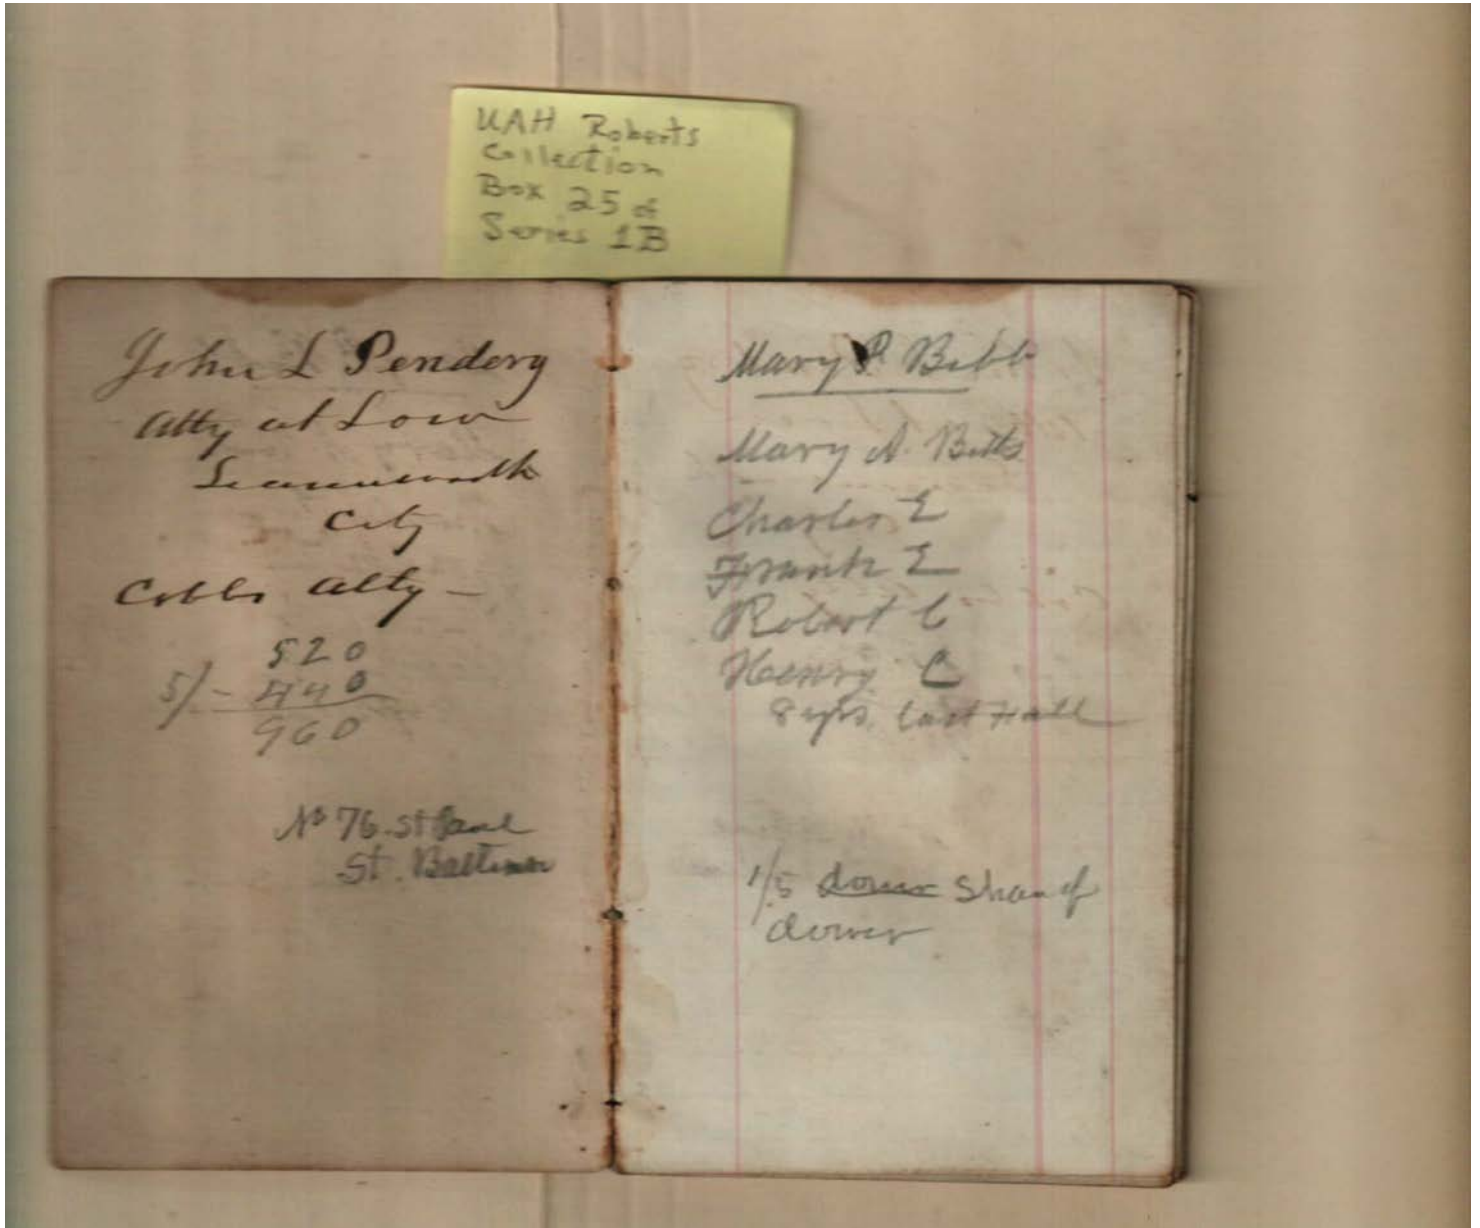 UAH Roberts
Collection
Box 25 of
Series 1B
John L Pendery
Atty at Law
Leavenworth
City
Cobbs Atty —
520
5/- 440
960
No 76. St Paul
St. Baltimore
Mary P. Bibb
Mary A. Betts
Charles E
Frank E
Robert C
Henry C
8 yrs. last Fall
1/5 dower Share of
dower